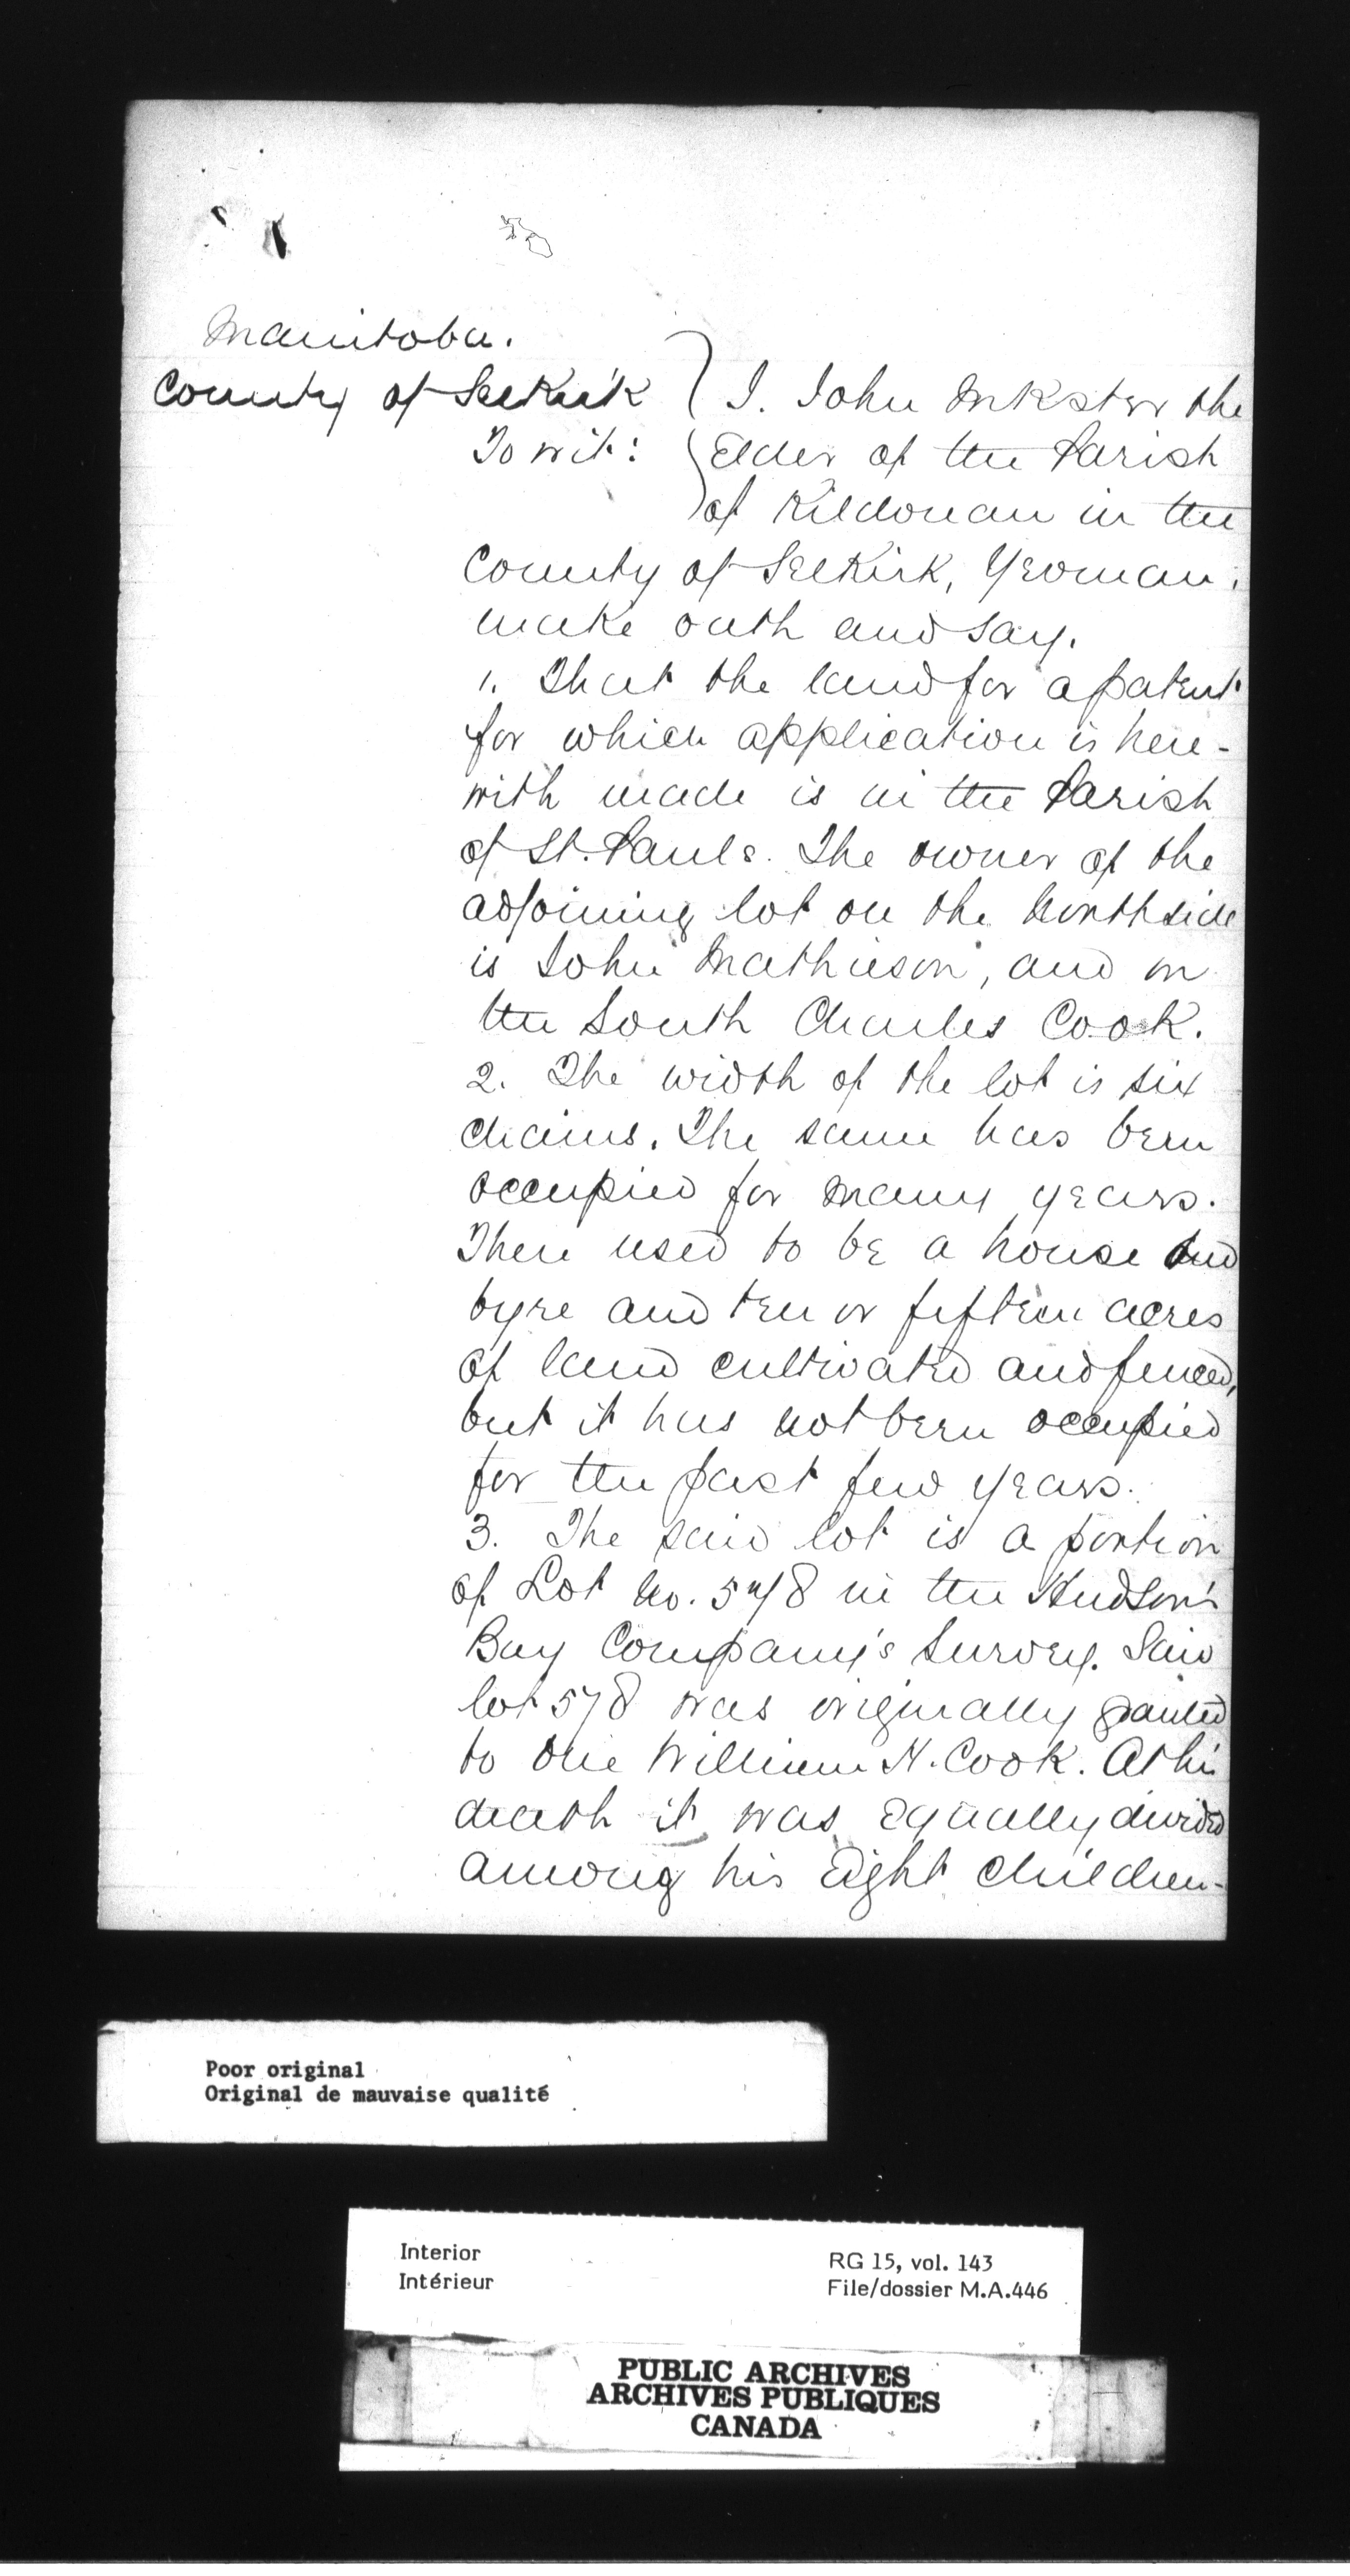 Manitoba.
County of Selkirk
To wit:
I. John Inkster the
Elder of the Parish
of Kildonan in the
County of Selkirk, Yeoman,
make oath and say.
1. That the land for a patent
for which application is here-
with made is in the Parish
of St. Pauls. The owner of the
adjoining lot on the North side
is John Mathieson, and on
the South Charles Cook.
2. The width of the lot is six
chains. The same has been
occupied for many years.
There used to be a house and
byre and ten or fifteen acres
of land cultivated and fenced,
but it has not been occupied
for the past few years.
3. The said lot is a portion
of Lot No. 578 in the Hudson's
Bay Company's Survey. Said
lot 578 was originally granted
to one William H. Cook. At his
death it was equally divided
among his Eight Children-
Poor original
Original de mauvaise qualité
Interior
Intérieur
RG 15, vol. 143
File/dossier M.A.446
PUBLIC ARCHIVES
ARCHIVES PUBLIQUES
CANADA